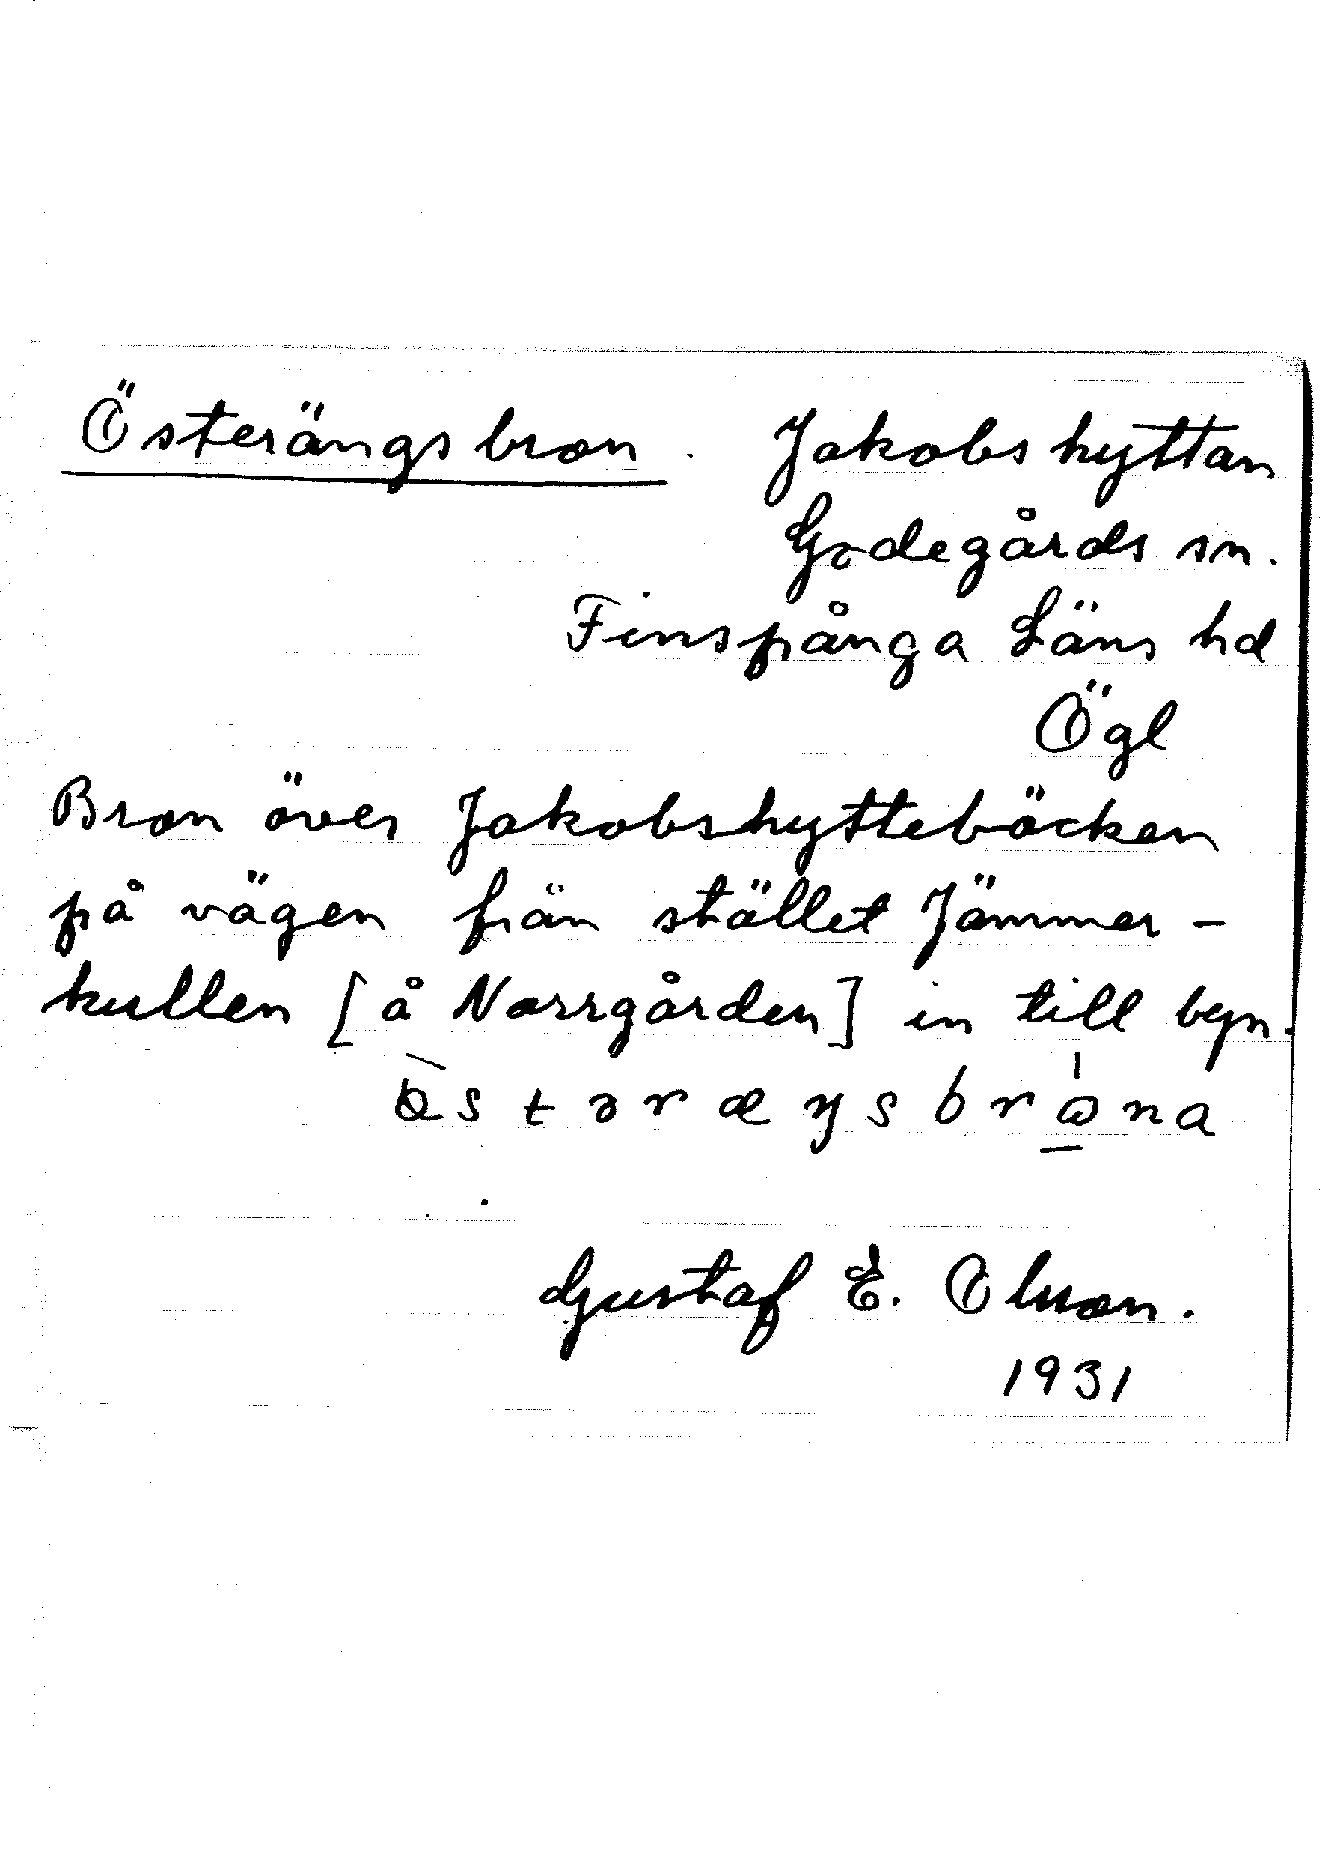 Österängsbron. Jakobshyttan
Godegårds sn.
Finspånga Läns hd
Ögl
Bron över Jakobshyttebäcken
på vägen från stället Jämmer-
kullen [å Norrgården] in till byn.
Gustaf E. Olsson.
1931